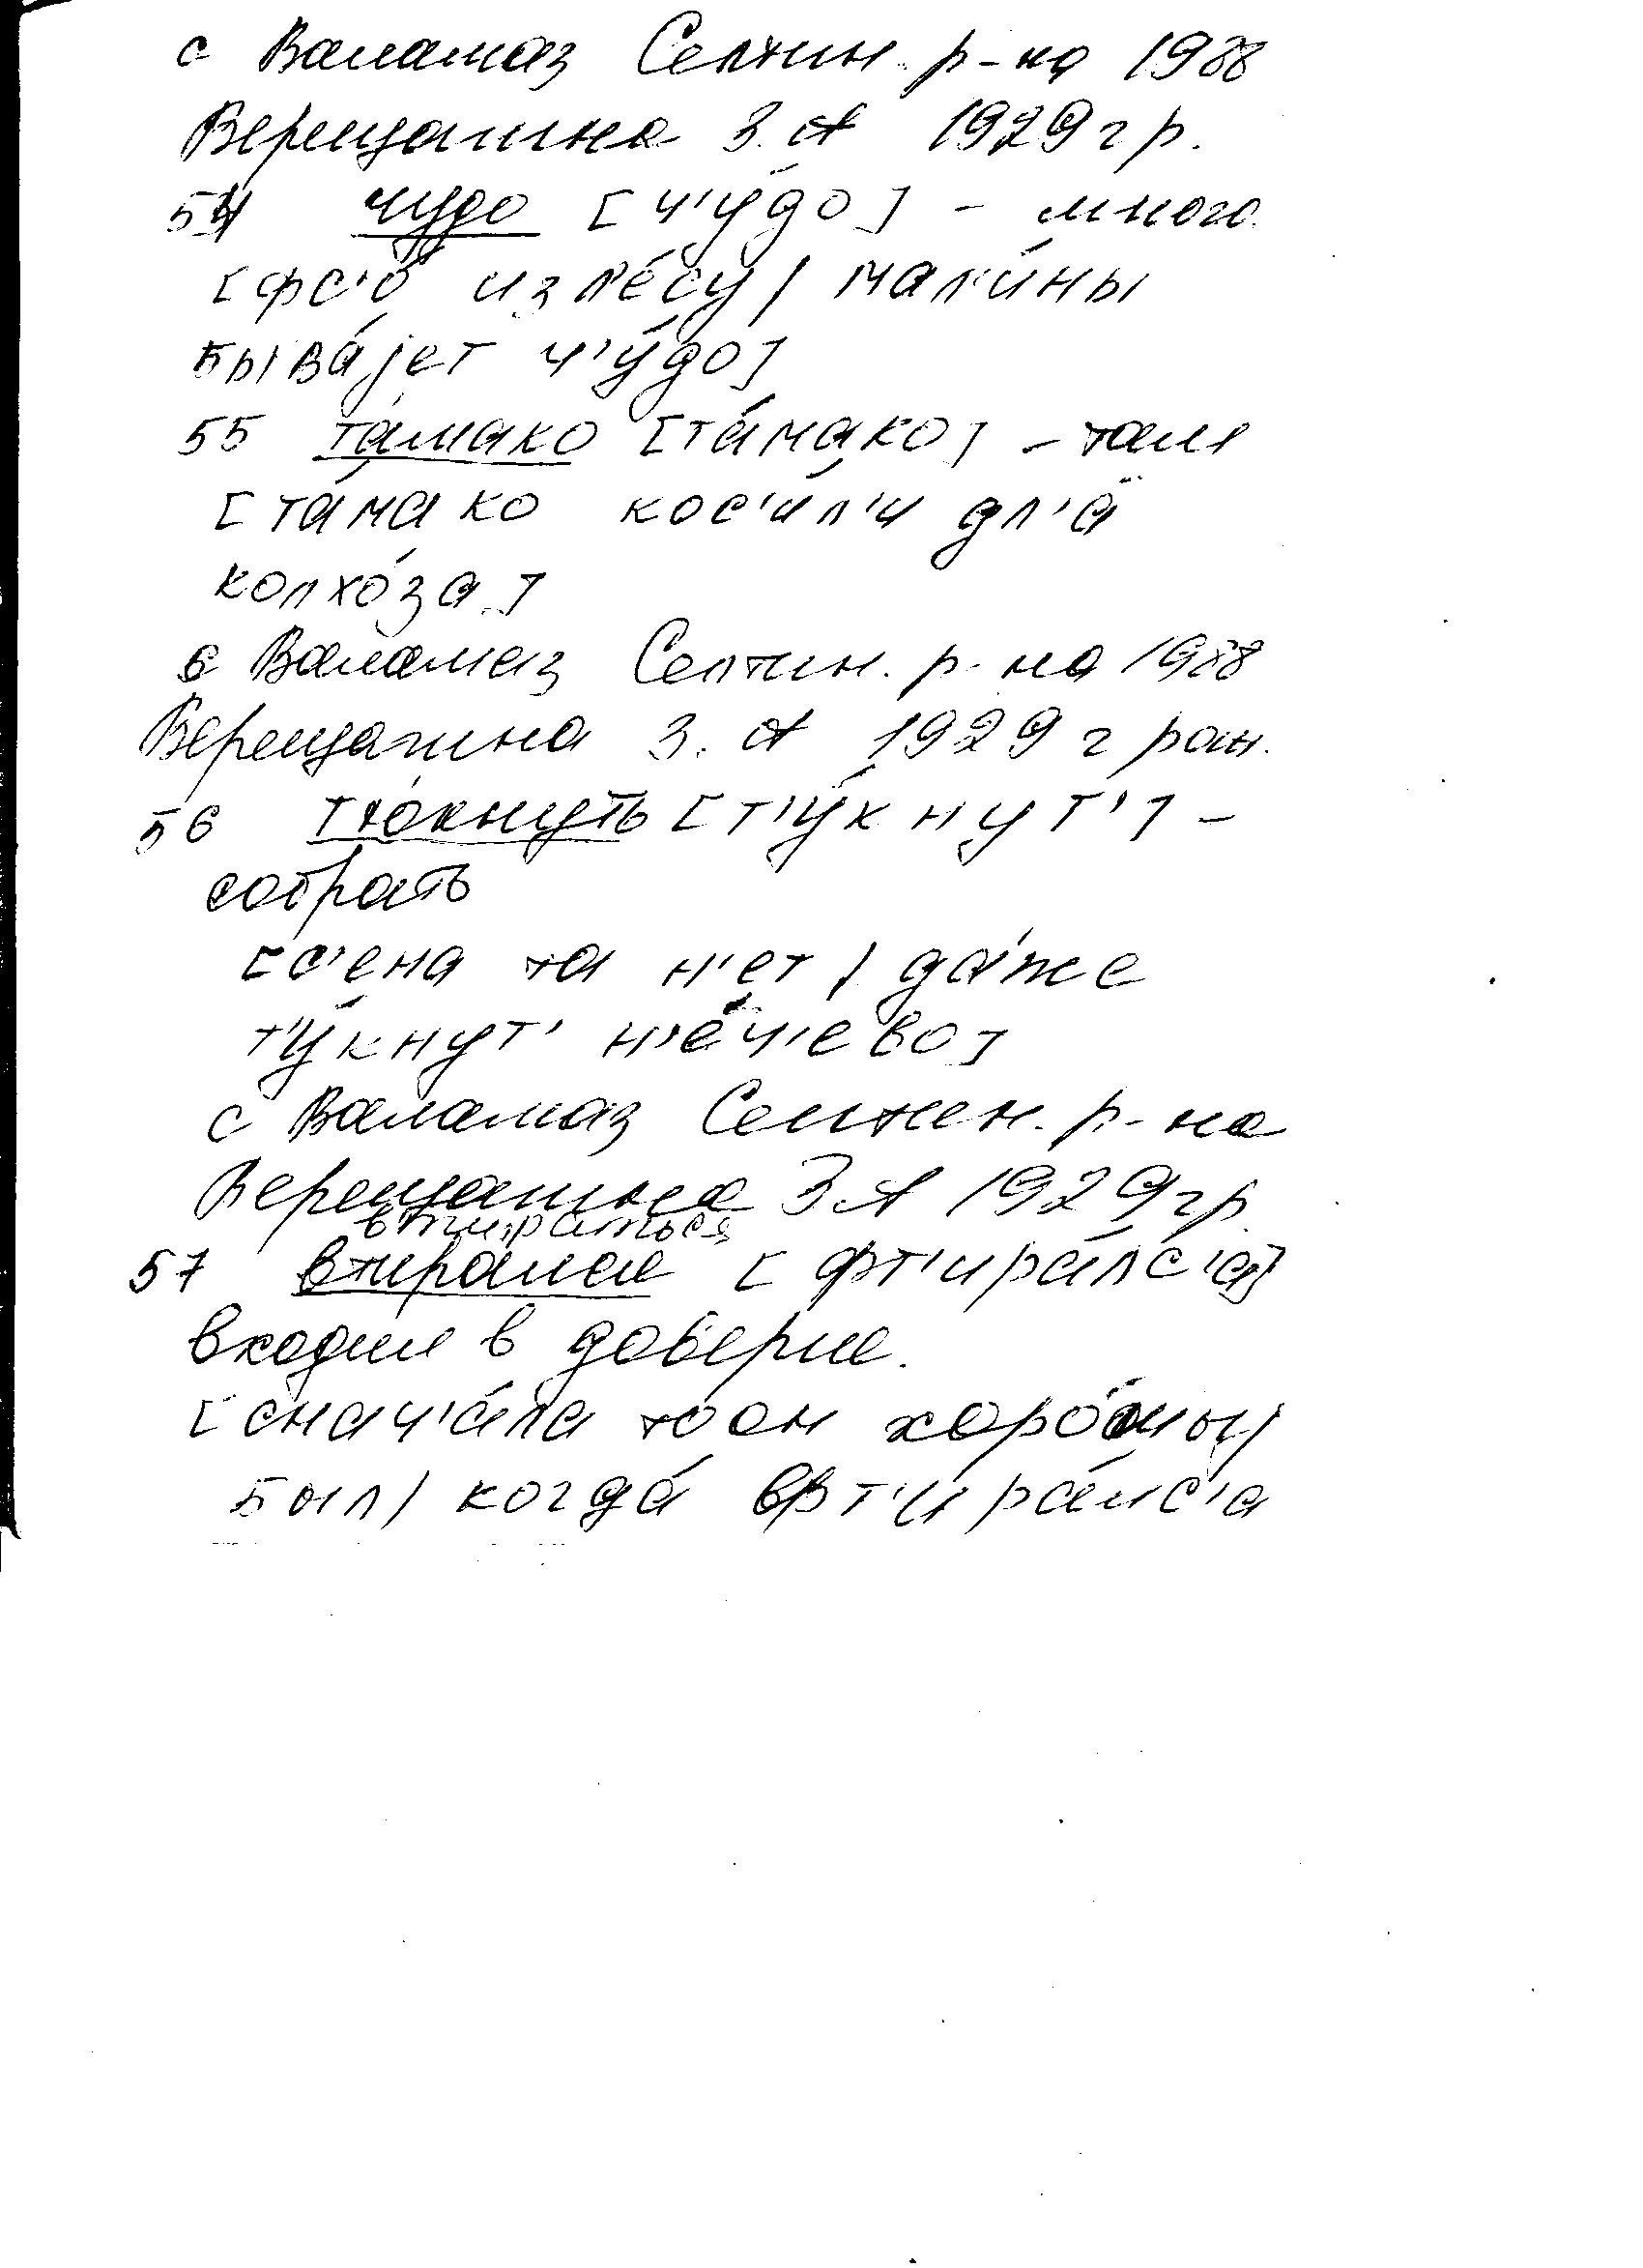 с Валамаз Селтин. р-на 1988
Верещагина З. А 1929 г р.
54 чудо [ч'у́до] - много
[фс'о́ из л'е́су / мал'и́ны
быва́јет ч'у́до]
55 та́мако [та́мако] - там
[та́мако кос'и́л'и дл'а
колхо́за]
с Валамаз Селтин. р-на 1988
Верещагина З. А 1929 г рож.
56 тюкнуть [т'у́кнут'] -
собрать
[с'ена та н'ет / да́же
т'у́кнут' н'е́ч'ево]
с Валамаз Селтин. р-на
Верещагина З.А 1929 г р.
втираться
57 втирался [фт'ира́лс'а]
входил в доверие.
[снач'а́ла то он хоро́шыј
был / когда́ фт'ира́лс'а